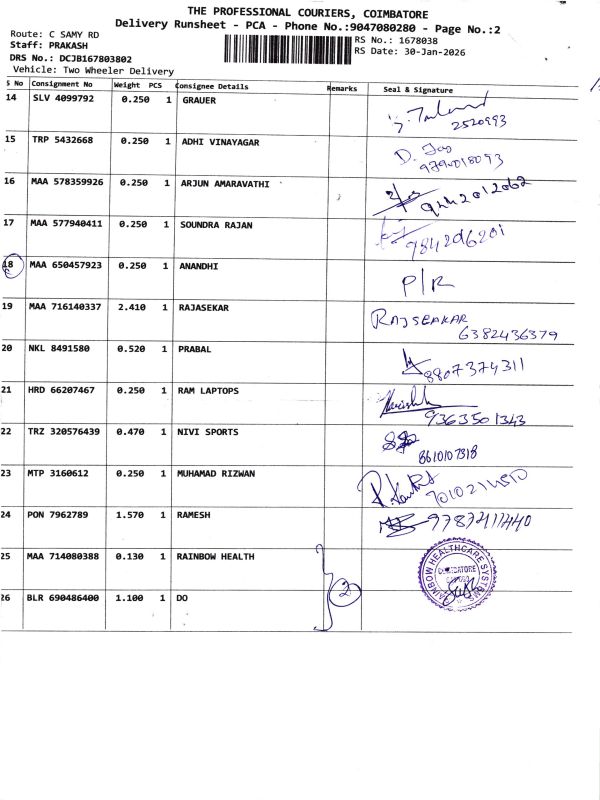 THE PROFESSIONAL COURIERS, COIMBATORE
Delivery Runsheet - PCA - Phone No.:9047080280 - Page No.:2
Route: C SAMY RD
RS No.: 1678038
Staff: PRAKASH
RS Date: 30-Jan-2026
DRS No.: DCJB167803802
Vehicle: Two Wheeler Delivery
S No Consignment No Weight PCS Consignee Details Remarks Seal & Signature
14 SLV 4099792 0.250 1 GRAUER
2520993
15 TRP 5432668 0.250 1 ADHI VINAYAGAR
D. Jas
9790018093
16 MAA 578359926 0.250 1 ARJUN AMARAVATHI
17 MAA 577940411 0.250 1 SOUNDRA RAJAN
9842206201
18 MAA 650457923 0.250 1 ANANDHI
P/R
19 MAA 716140337 2.410 1 RAJASEKAR
RAJSEAKAR
6382436379
20 NKL 8491580 0.520 1 PRABAL
8807374311
21 HRD 66207467 0.250 1 RAM LAPTOPS
9363501343
22 TRZ 320576439 0.470 1 NIVI SPORTS
8610107318
23 MTP 3160612 0.250 1 MUHAMAD RIZWAN
24 PON 7962789 1.570 1 RAMESH
25 MAA 714080388 0.130 1 RAINBOW HEALTH
RAINBOW HEALTHCARE SYSTEMS
COIMBATORE
26 BLR 690486400 1.100 1 DO
2